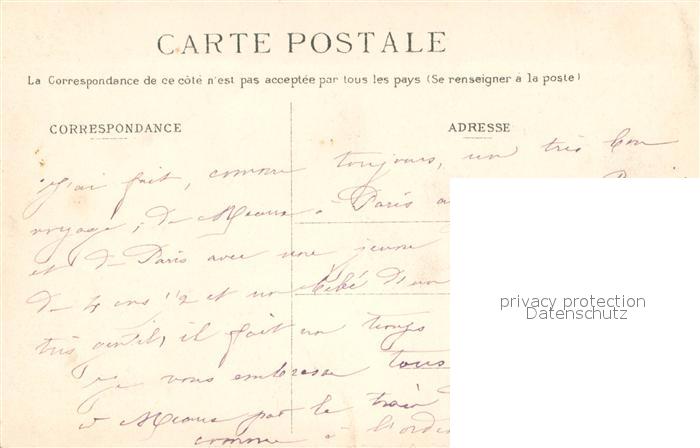 CARTE POSTALE
La Correspondance de ce côté n'est pas acceptée par tous les pays (Se renseigner à la poste)
CORRESPONDANCE
ADRESSE
J'ai fait, comme toujours, un très bon
voyage, de Meaux à Paris
et de Paris avec une jeune
de 4 ans 1/2 et un Bébé d'un
très gentil, il fait un temps
je vous embrasse tous
à Meaux par le train
comme à l'ordi
privacy protection
Datenschutz